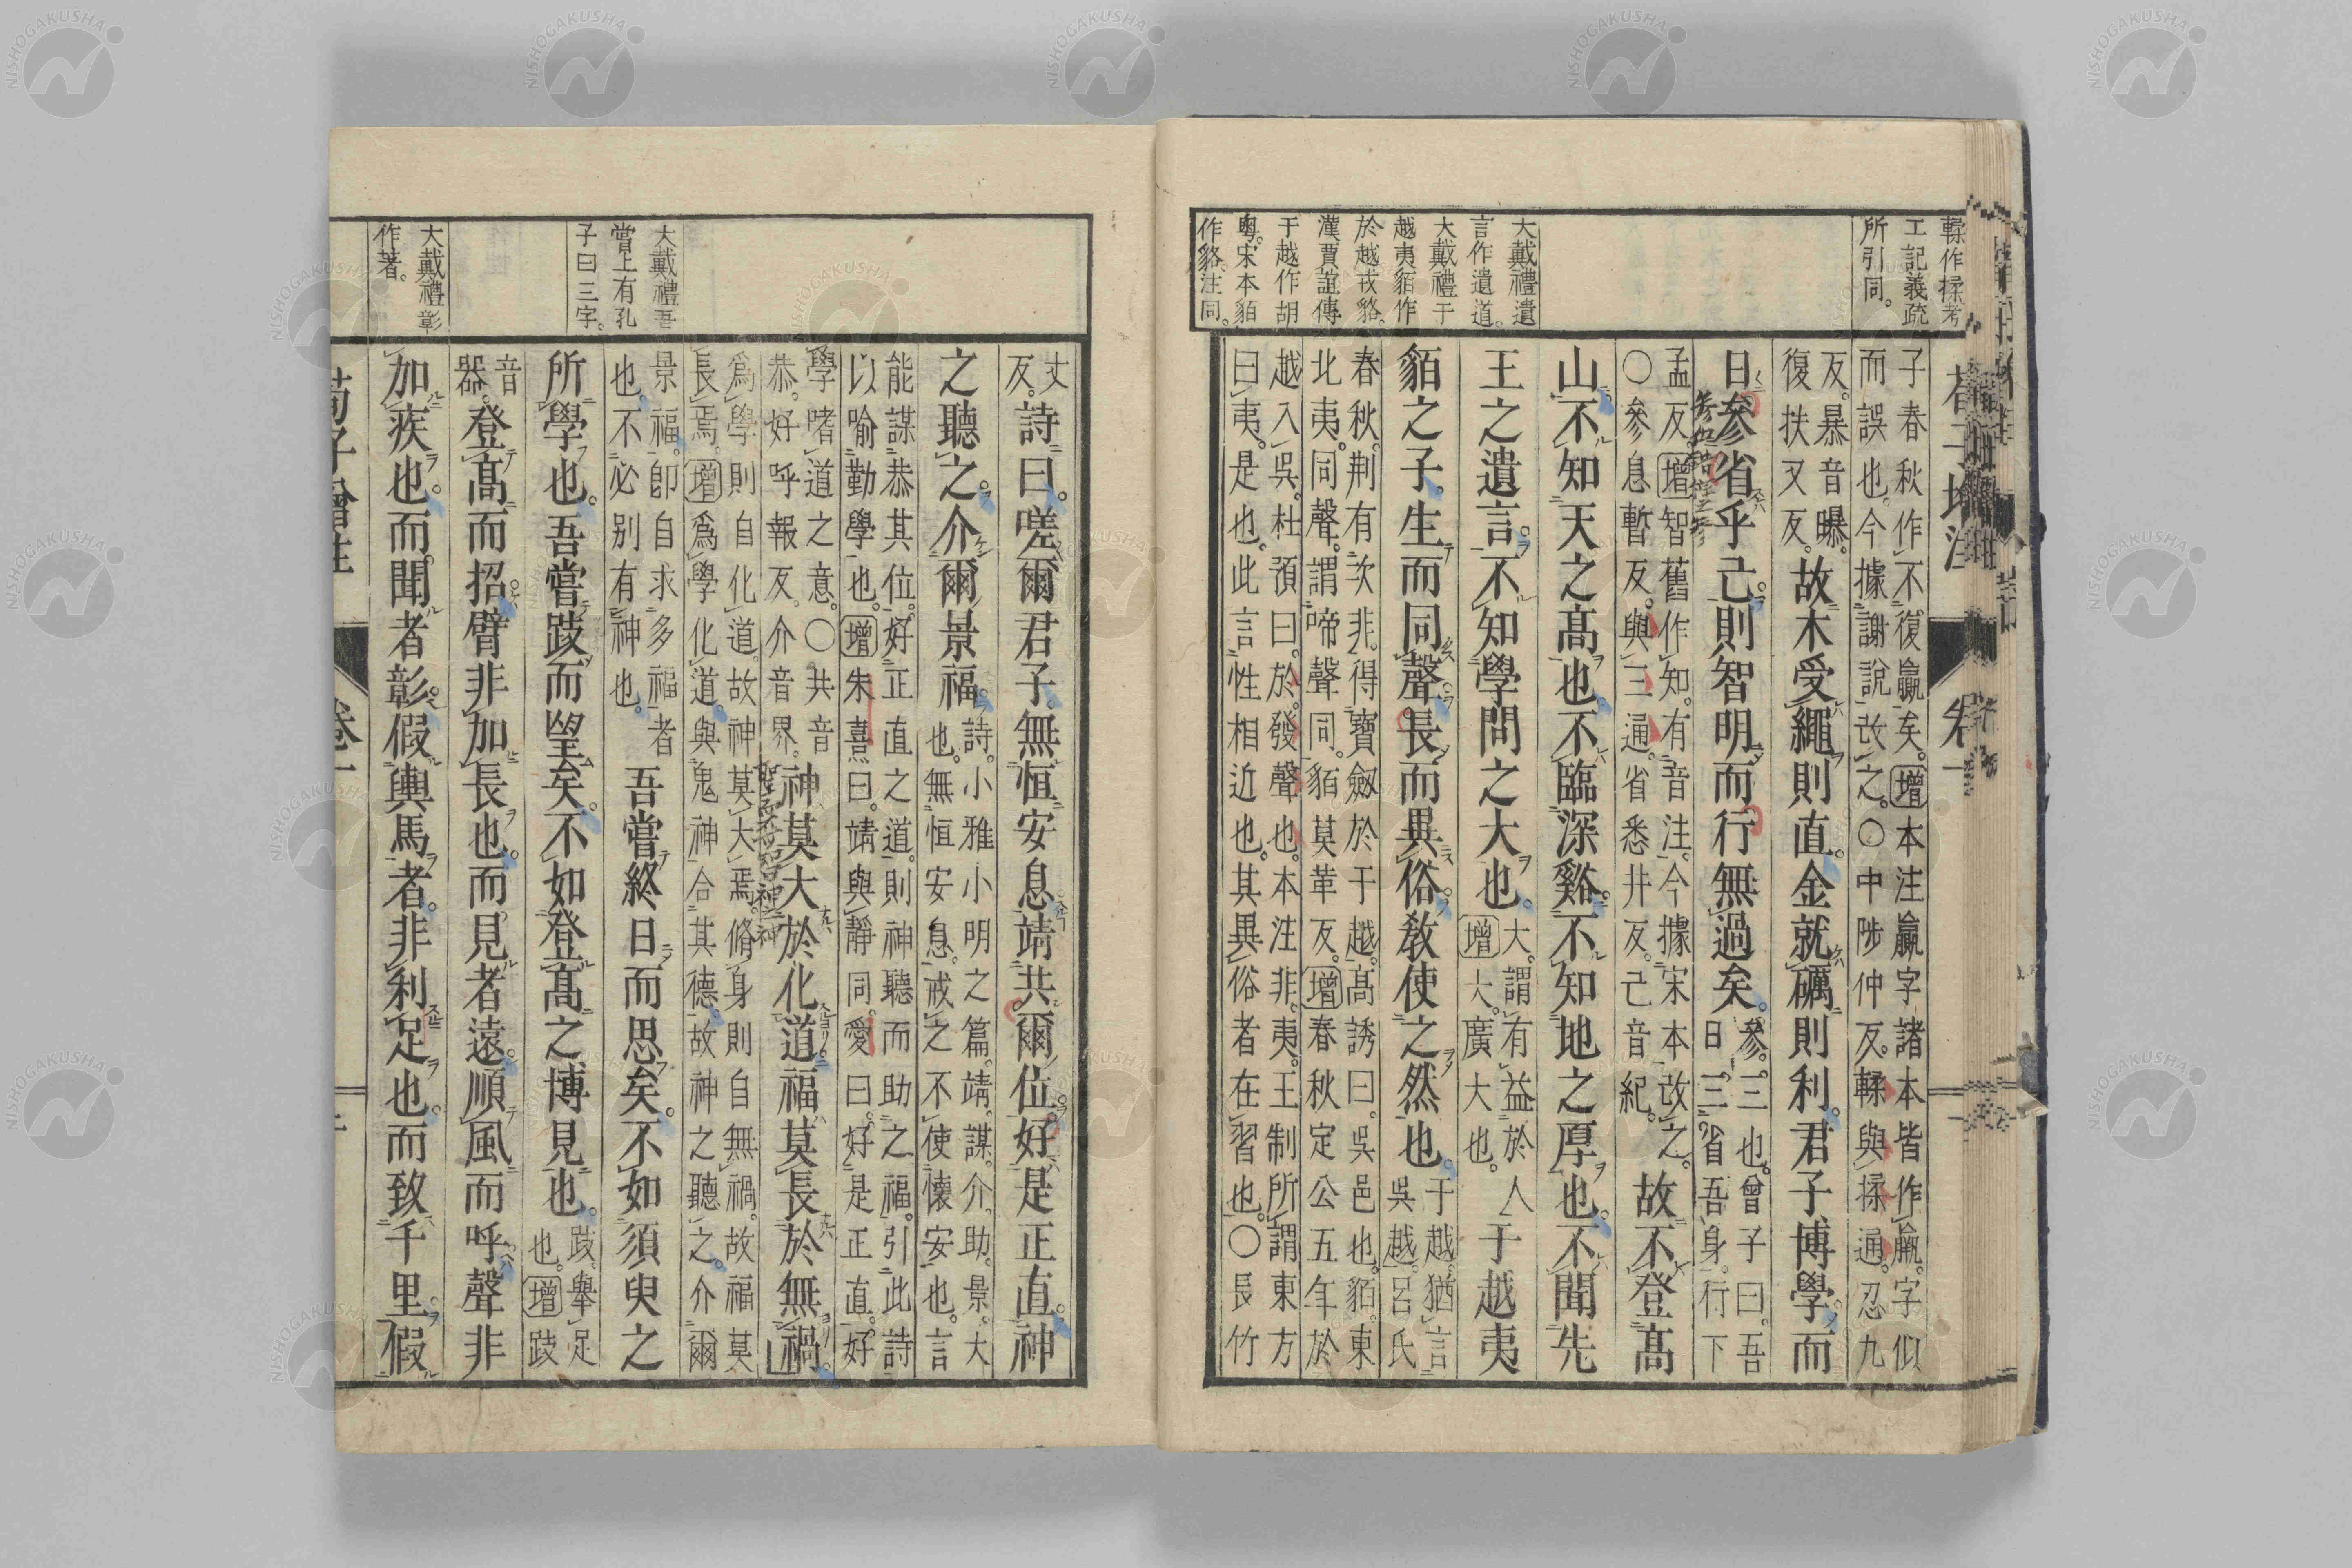 荀子增注
卷一
輮作揉考
工記義疏
所引同。
大戴禮遺
言作遺道。
大戴禮于
越夷貊作
於越戎貉。
漢賈誼傳
于越作胡
粵。宋本貊
作貉。注同。
子春秋作不復贏矣。增本注贏字諸本皆作羸。字似
而誤也。今據謝說改之。〇中陟仲反。輮與揉通。忍九
反。暴音曝。
復扶又反。
故木受繩則直。金就礪則利。君子博學而
日參省乎己。則智明而行無過矣。
參。三也。曾子曰。吾
日三省吾身。行下
孟反。增智舊作知。有音注。今據宋本改之。
〇參息暫反。與三通。省悉井反。己音紀。
故不登高
山。不知天之高也。不臨深谿。不知地之厚也。不聞先
王之遺言。不知學問之大也。
大。謂有益於人
增大。廣大也。
于越夷
貊之子。生而同聲。長而異俗。教使之然也。
于越。猶言
吳越。呂氏
春秋。荆有次非。得寶劔於于越。高誘曰。吳邑也。貊。東
北夷。同聲。謂啼聲同。貊莫革反。增春秋定公五年於
越入吳。杜預曰。於。發聲也。本注非。夷。王制所謂東方
曰夷。是也。此言性相近也。其異俗者在習也。〇長竹
大戴禮吾
嘗上有孔
子曰三字。
大戴禮彰
作著。
丈
反。
詩曰。嗟爾君子。無恒安息。靖共爾位。好是正直。神
之聽之。介爾景福。
詩。小雅小明之篇。靖。謀。介。助。景。大
也。無恒安息。戒之不使懷安也。言
能謀恭其位。好正直之道。則神聽而助之福。引此詩
以喻勤學也。增朱熹曰。靖與靜同。愛曰。好是正直。好
學嗜道之意。〇共音
恭。好呼報反。介音界。
神莫大於化道。福莫長於無禍。
爲學則自化道。故神莫大焉。脩身則自無禍。故福莫
長焉。增爲學化道。與鬼神合其德。故神之聽之。介爾
景福。卽自求多福者
也。不必別有神也。
吾嘗終日而思矣。不如須臾之
所學也。吾嘗跂而望矣。不如登高之博見也。
跂。舉足
也。增跂
音
器。
登高而招。臂非加長也。而見者遠。順風而呼。聲非
加疾也。而聞者彰。假輿馬者。非利足也。而致千里。假
荀子增注
卷一